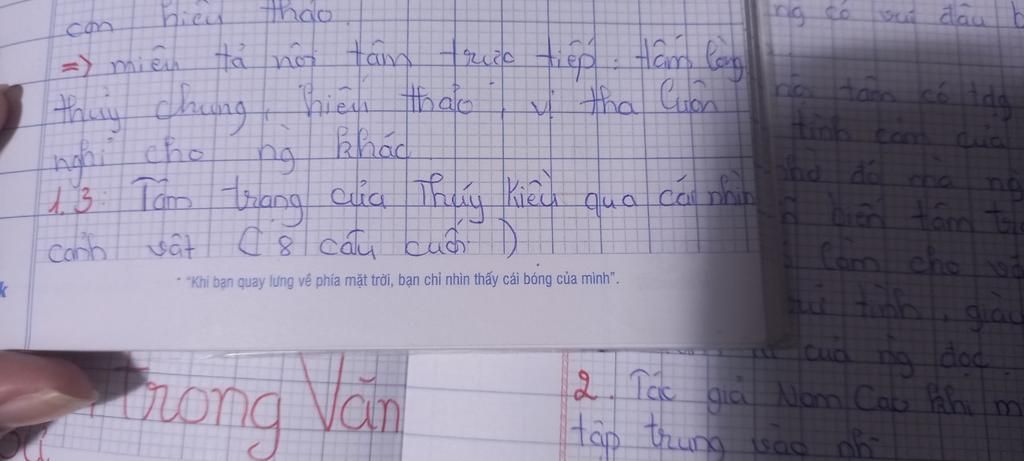 con hiếu thảo.
=> miêu tả nội tâm trực tiếp: tấm lòng
thủy chung, hiếu thảo, vị tha luôn
nghĩ cho ng khác
1.3: Tâm trạng của Thúy Kiều qua cái nhìn
cảnh vật (8 câu cuối)
"Khi bạn quay lưng về phía mặt trời, bạn chỉ nhìn thấy cái bóng của mình".
trong Văn
tâm có
tình cảm của
nhờ đó mà
biến tâm
làm cho
tình, giàu
của ng đọc.
2. Tác giả Nam Cao khi
tập trung vào